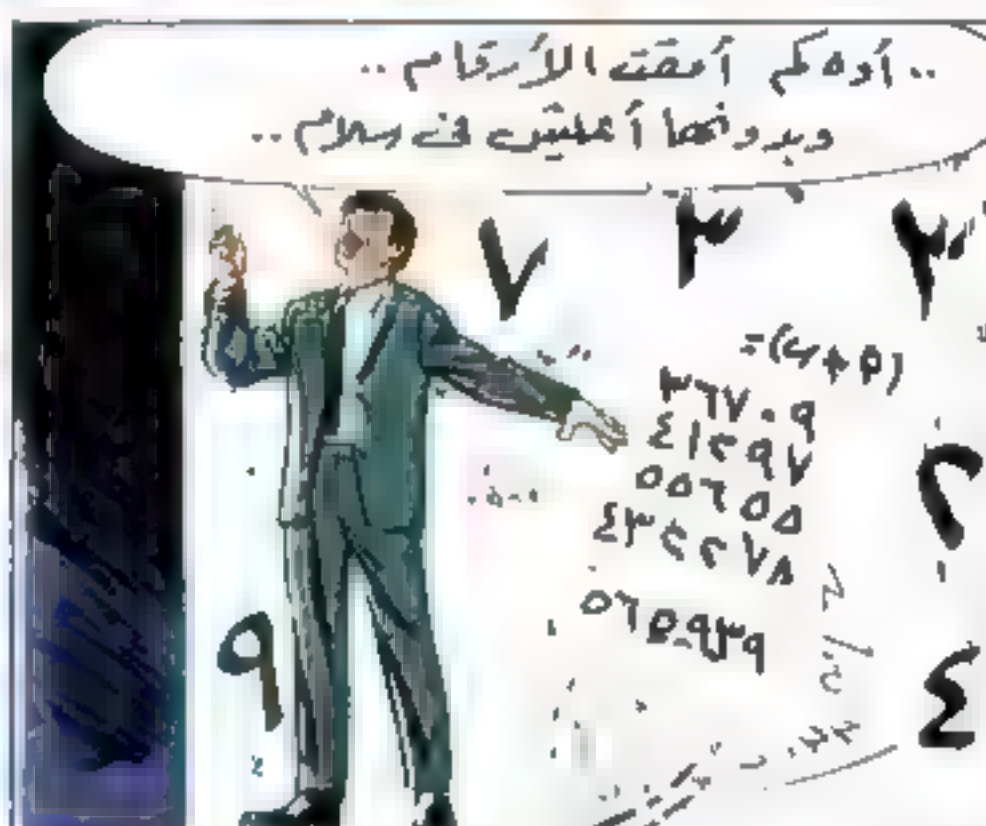 .. أوه كم أمقت الأرقام ..
وبدونها أعيش فى سلام ..
٧ ٣ ٣
=(٩+ب)
٣٦٧٠٩
٤١٢٩٧
٥٥٦٥٥
٤٣٢٢٧٨
٥٦٥٩٣٩
؟
٩
٤